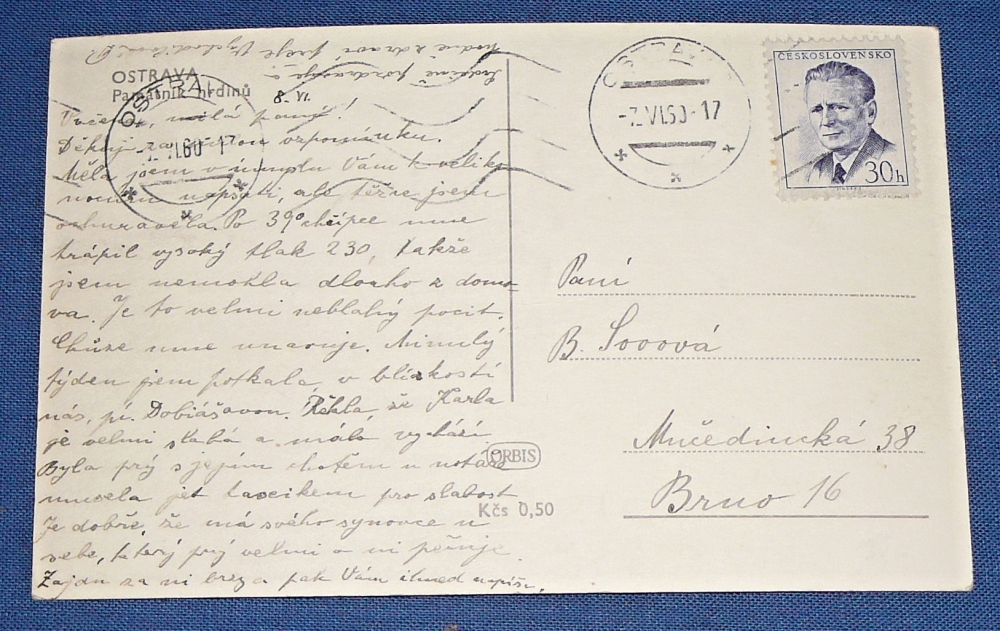 hodně zdraví přeje Vychodilová
Srdečně pozdravuje a
OSTRAVA
Památník hrdinů
8. VI.
milá paní!
Děkuji za vzpomínku.
Měla jsem v úmyslu Vám k veliko-
nocům napsati, ale těžce jsem
ochuravěla. Po 39° chřipce mne
trápil vysoký tlak 230, takže
jsem nemohla dlouho z domo-
va. Je to velmi neblahý pocit.
Chůze mne unavuje. Minulý
týden jsem potkala, v blízkosti
nás, pí. Dobiášovou. Řekla, že Karla
je velmi slabá a málo vychází
Byla prý s jejím chotěm u notáře
musela jet taxikem pro slabost
Je dobře, že má svého synovce u
sebe, který prý velmi o ni pečuje.
Zajdu za ní brzy a pak Vám ihned napíšu.
OSTRAVA
-7.VI.60-17
OSTRAVA
-7.VI.60-17
ČESKOSLOVENSKO
30h
Paní
B. Sovová
Mučednická 38
Brno 16
ORBIS
Kčs 0,50